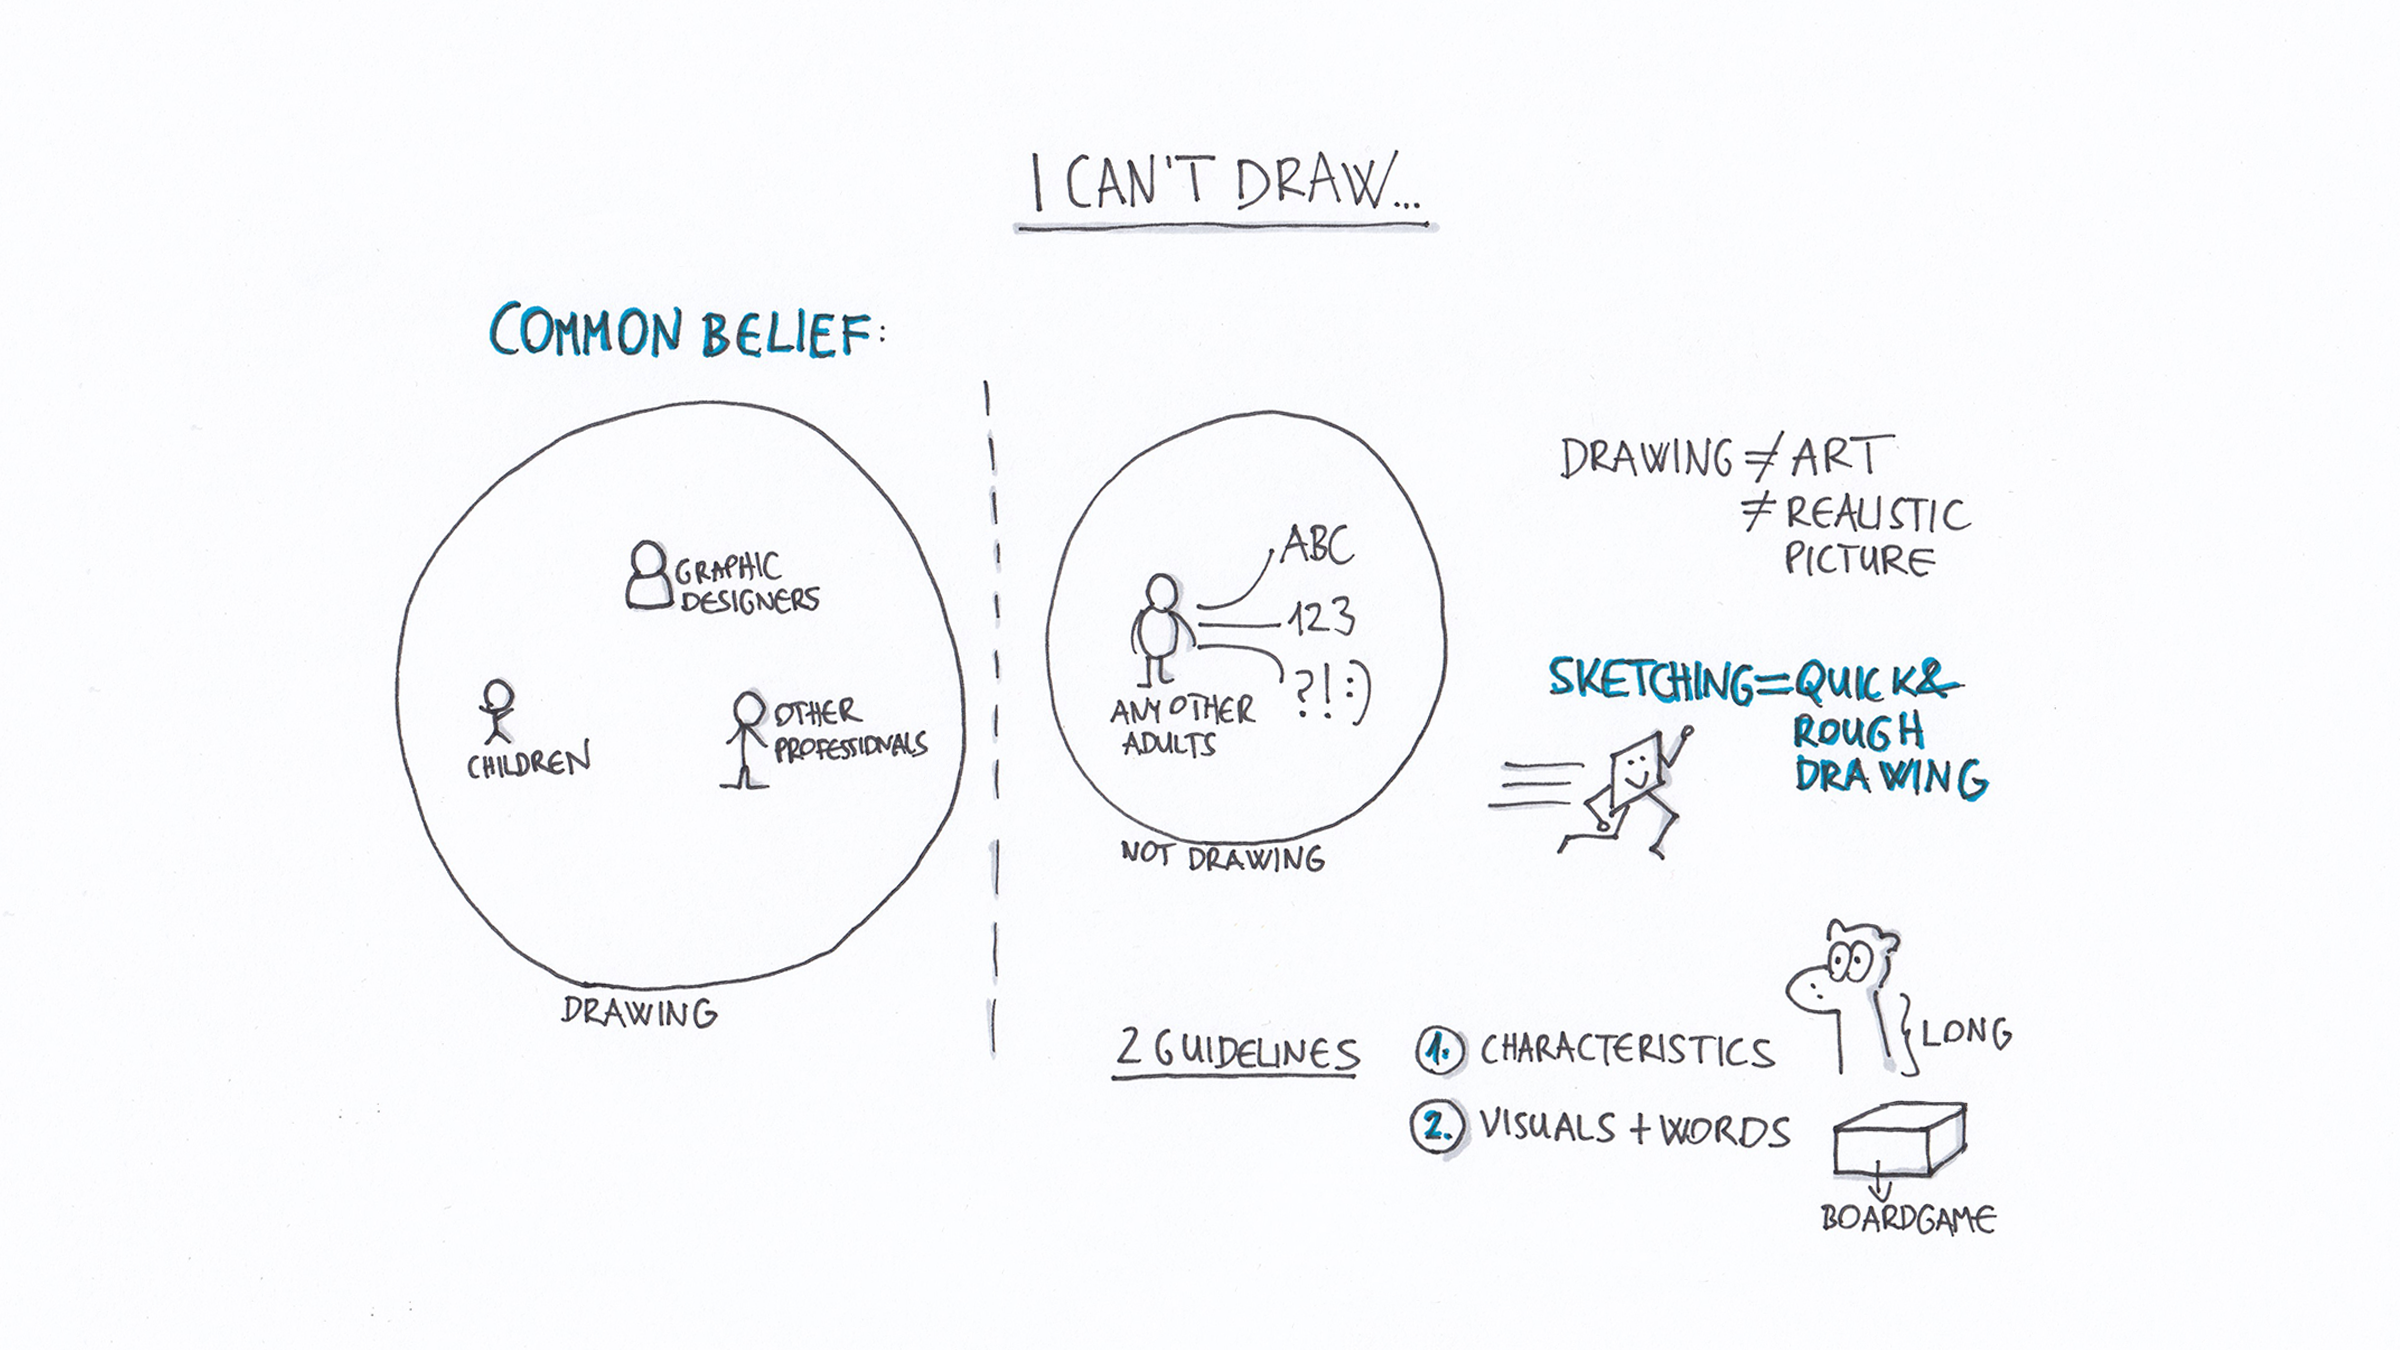 I CAN'T DRAW...
COMMON BELIEF:
GRAPHIC
DESIGNERS
CHILDREN
OTHER
PROFESSIONALS
DRAWING
ABC
123
?!:)
ANY OTHER
ADULTS
NOT DRAWING
DRAWING ≠ ART
≠ REALISTIC
PICTURE
SKETCHING = QUICK &
ROUGH
DRAWING
2 GUIDELINES
1. CHARACTERISTICS
LONG
2. VISUALS + WORDS
BOARDGAME